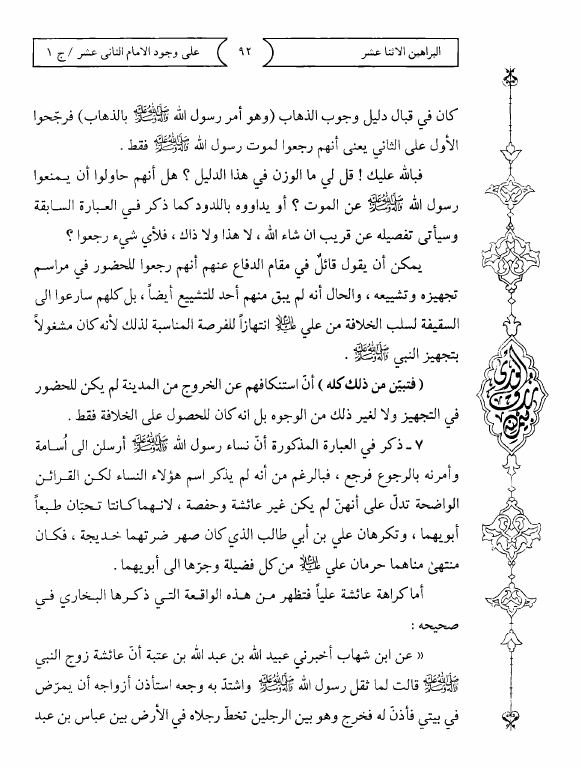 البراهين الاثنا عشر
٩٢
على وجود الامام الثانى عشر / ج ١
كان في قبال دليل وجوب الذهاب (وهو أمر رسول الله ﷺ بالذهاب) فرجّحوا
الأول على الثاني يعنى أنهم رجعوا لموت رسول الله ﷺ فقط .
فبالله عليك ! قل لي ما الوزن في هذا الدليل ؟ هل أنهم حاولوا أن يمنعوا
رسول الله ﷺ عن الموت ؟ أو يداووه باللدود كما ذكر في العبارة السابقة
وسيأتى تفصيله عن قريب ان شاء الله ، لا هذا ولا ذاك ، فلأي شيء رجعوا ؟
يمكن أن يقول قائلٌ في مقام الدفاع عنهم أنهم رجعوا للحضور في مراسم
تجهيزه وتشييعه ، والحال أنه لم يبق منهم أحد للتشييع أيضاً ، بل كلهم سارعوا الى
السقيفة لسلب الخلافة من علي عليه السلام انتهازاً للفرصة المناسبة لذلك لأنه كان مشغولاً
بتجهيز النبي ﷺ .
( فتبيّن من ذلك كله ) أنّ استنكافهم عن الخروج من المدينة لم يكن للحضور
في التجهيز ولا لغير ذلك من الوجوه بل انه كان للحصول على الخلافة فقط .
٧ ـ ذكر في العبارة المذكورة أنّ نساء رسول الله ﷺ أرسلن الى أُسامة
وأمرنه بالرجوع فرجع ، فبالرغم من أنه لم يذكر اسم هؤلاء النساء لكن القرائن
الواضحة تدلّ على أنهنّ لم يكن غير عائشة وحفصة ، لانهما كانتا تحبّان طبعاً
أبويهما ، وتكرهان علي بن أبي طالب الذي كان صهر ضرتهما خديجة ، فكان
منتهىٰ مناهما حرمان علي عليه السلام من كل فضيلة وجرّها الى أبويهما .
أما كراهة عائشة علياً فتظهر من هذه الواقعة التي ذكرها البخاري في
صحيحه :
« عن ابن شهاب أخبرني عبيد الله بن عبد الله بن عتبة أنّ عائشة زوج النبي
ﷺ قالت لما ثقل رسول الله ﷺ واشتدّ به وجعه استأذن أزواجه أن يمرّض
في بيتي فأذنّ له فخرج وهو بين الرجلين تخطّ رجلاه في الأرض بين عباس بن عبد